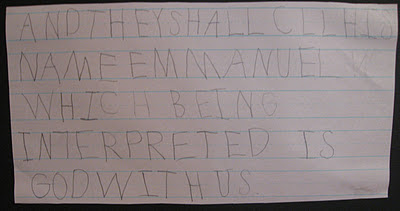 ANDTHEYSHALL CLLHIS
NAMEEMMANUEL
WHICH BEING
INTERPRETED IS
GODWITHUS.